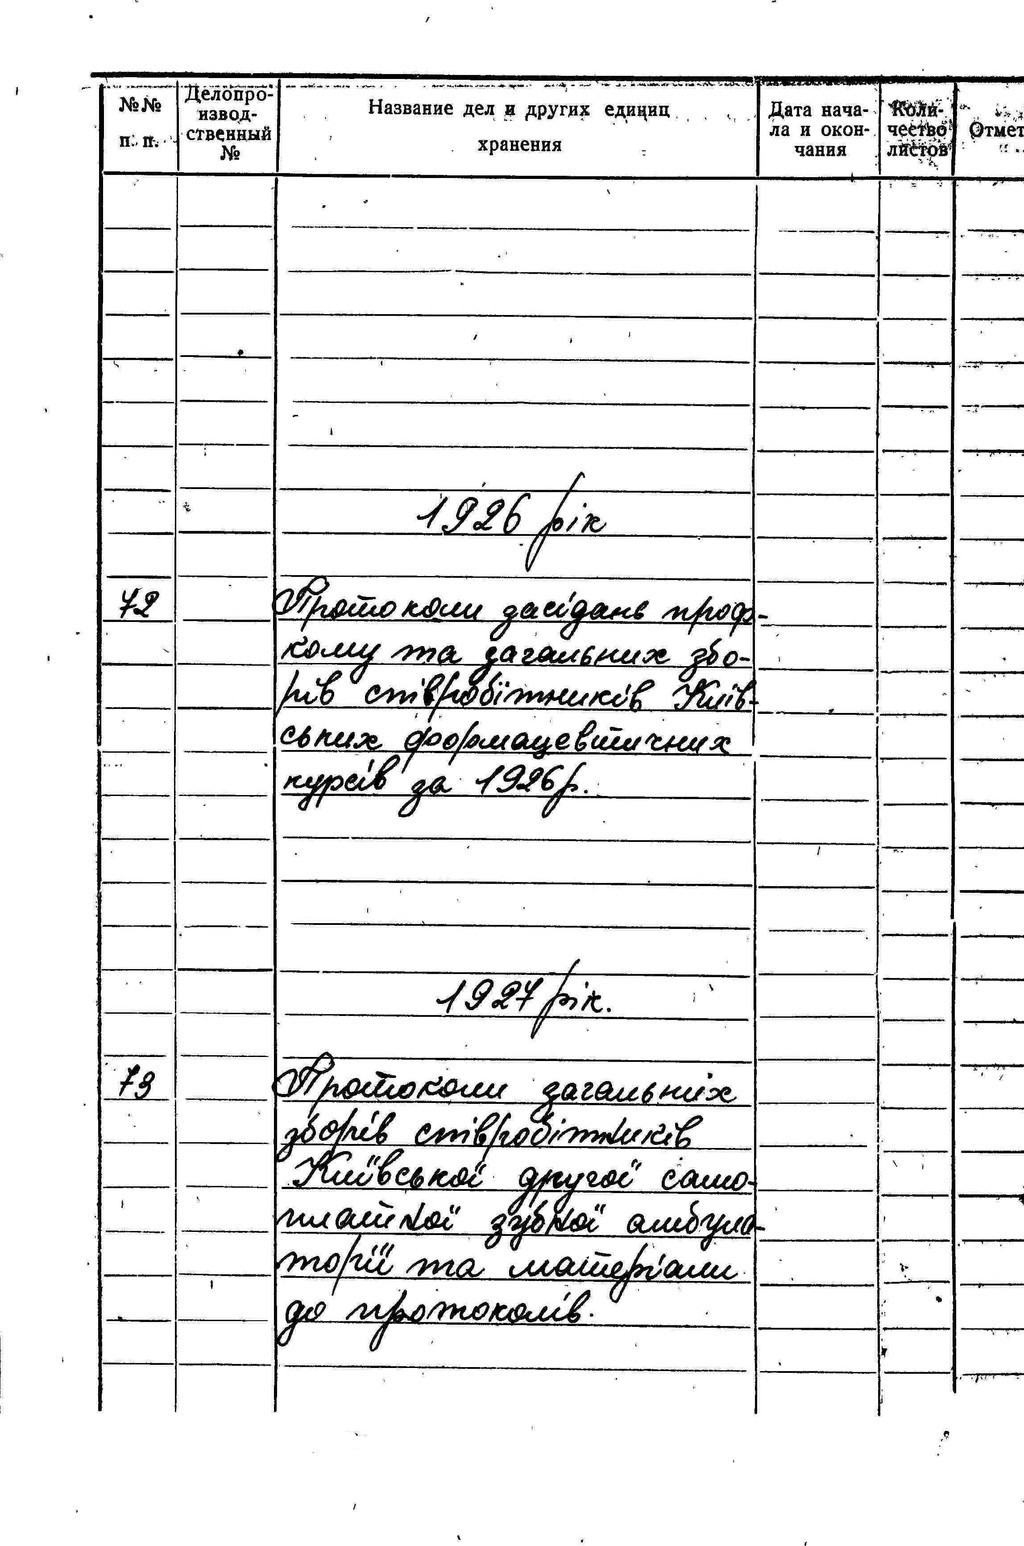 №№ п. п.
Делопро-
извод-
ственный
№
Название дел и других единиц
хранения
Дата нача-
ла и окон-
чания
Коли-
чество
листов
Отмет
1926 рік
72 Протоколи засідань проф-
кому та загальних збо-
рів співробітників Київ-
ських фармацевтичних
курсів за 1926 р.
1927 рік.
73 Протоколи загальних
зборів співробітників
Київської другої само-
платної зубної амбула-
торії та матеріали
до протоколів.